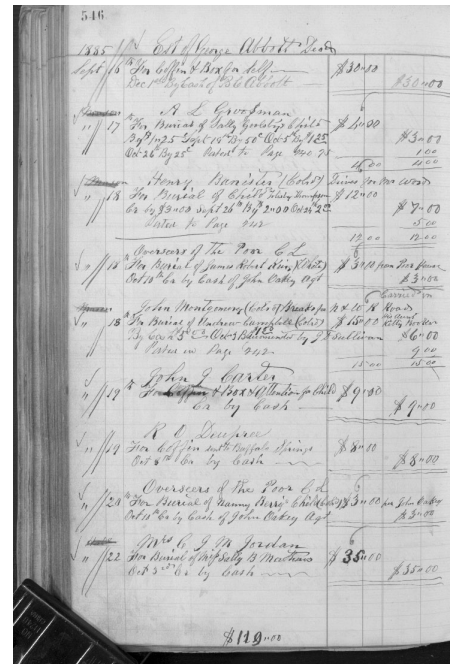 546
1885 Est of George Abbott Decd
Sept 16 For Coffin & Box for Self $30.00
Dec 1st By Cash of Abbott $30.00
A L Groosman
" 17 For Burial of Sally Child $4.00
25 Sept 19th By 50c Oct 5 By $1.25 $3.00
Oct 26 By 25c Page 240 75 1.00
4.00 4.00
Henry Banister (Cold) Drives for
" 18 For Burial of Child $12.00
Cr by $3.00 Sept 26th By 2.00 Oct 24 $7.00
to Page 242 5.00
12.00 12.00
Overseers of the Poor
" 18 For Burial of James Robert King (Cold) $3.00 from Poor House
Oct 10th Cr by Cash of John Oakey Agt $3.00
John Montgomery (Cold) Breaks for N & W R Roads
" 18 For Burial of Andrew Campbell (Cold) $15.00 Kitty Booker
By Cash by Sullivan $6.00
in Page 242 9.00
15.00 15.00
John J Carter
" 19 For Box & Attention for Child $9.00
Cr by Cash $9.00
R O Dupree
" 19 For Coffin sent to Buffalo Springs $8.00
Oct 8th Cr by Cash $8.00
Overseers of the Poor
" 20 For Burial of Nanny Berry Child $3.00 per John Oakey
Oct 10th Cr by Cash of John Oakey Agt $3.00
Mrs C J M Jordan
" 22 For Burial of Miss Sally B $35.00
Oct 3rd Cr by Cash $35.00
$119.00